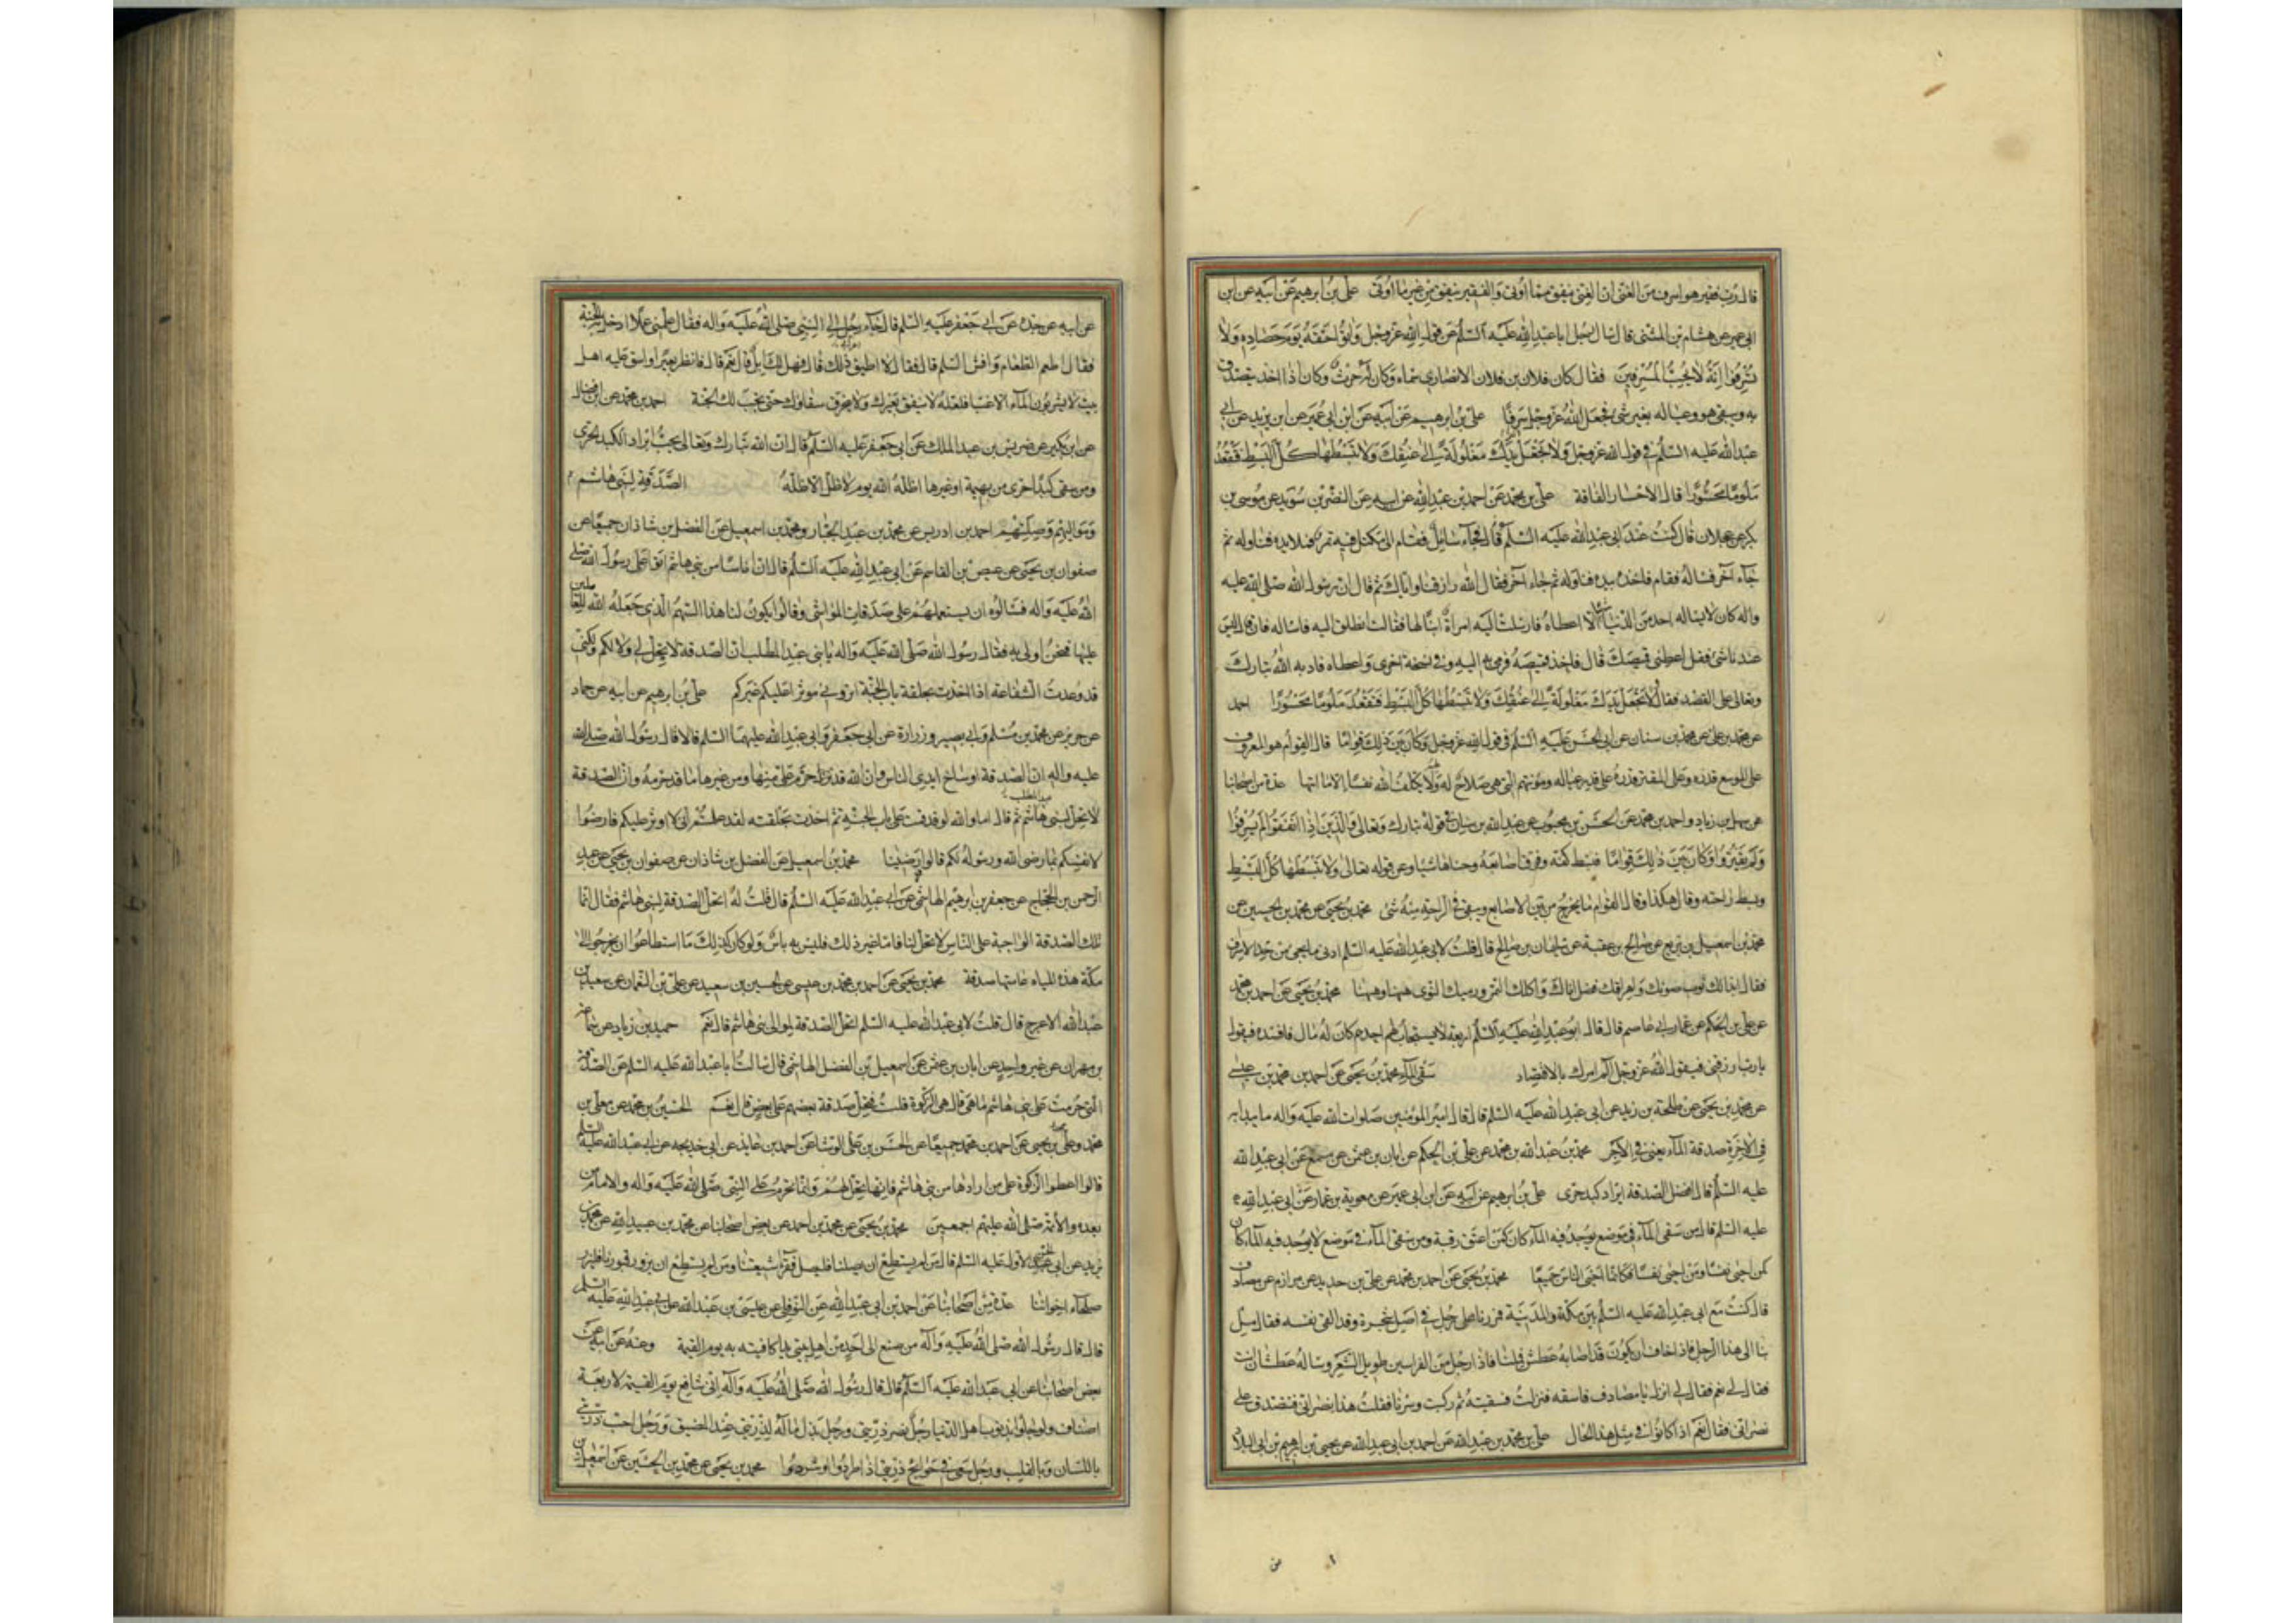 قال رب فقير هو اسرف من الغنى ان الغنى ينفق مما اوتى والفقير ينفق من غير ما اوتى على بن ابرهيم عن ابيه عن ابن
ابى عمير عن هشام بن المثنى قال سال رجل ابا عبد الله عليه السلم عن قول الله عز وجل واتوا حقه يوم حصاده ولا
تسرفوا انه لا يحب المسرفين فقال كان فلان بن فلان الانصارى سماه وكان له حرث وكان اذا اخذ يتصدق
به ويبقى هو وعياله بغير شئ فجعل الله عز وجل سرفا على بن ابرهيم عن ابيه عن ابن ابى عمير عن ابن يزيد عن ابى
عبد الله عليه السلم فى قول الله عز وجل ولا تجعل يدك مغلولة الى عنقك ولا تبسطها كل البسط فتقعد
ملوما محسورا قال الاحسار الفاقة على بن محمد عن احمد بن عبد الله عن ابيه عن النضر بن سويد عن موسى بن
بكر عن عجلان قال كنت عند ابى عبد الله عليه السلم فجاء سائل فقام الى مكتل فيه تمر فملا يده فناوله ثم
جاء آخر فساله فقام فاخذ بيده فناوله ثم جاء آخر فقال الله رازقنا واياك ثم قال ان رسول الله صلى الله عليه
واله كان لا يساله احد من الدنيا شيئا الا اعطاه فارسلت اليه امراة ابنا لها فقالت انطلق اليه فاساله فان قال ليس
عندنا شئ فقل اعطنى قميصك قال فاخذ قميصه فرمى به اليه وفى نسخة اخرى واعطاه فادبه الله تبارك
وتعالى على القصد فقال لا تجعل يدك مغلولة الى عنقك ولا تبسطها كل البسط فتقعد ملوما محسورا احمد
عن محمد بن على عن محمد بن سنان عن ابى الحسن عليه السلم فى قول الله عز وجل وكان بين ذلك قواما قال القوام هو المعروف
على الموسع قدره وعلى المقتر قدره على قدر عياله ومؤنتهم التى هى صلاح له ولهم لا يكلف الله نفسا الا ما اتيها عدة من اصحابنا
عن سهل بن زياد واحمد بن محمد عن الحسن بن محبوب عن عبد الله بن سنان فى قوله تبارك وتعالى والذين اذا انفقوا لم يسرفوا
ولم يقتروا وكان بين ذلك قواما فبسط كفه وفرق اصابعه وحناها شيئا وعن قوله تعالى ولا تبسطها كل البسط
وبسط راحته وقال هكذا وقال القوام ما يخرج من بين الاصابع ويبقى فى الراحة منه شئ محمد بن يحيى عن محمد بن الحسين عن
محمد بن اسمعيل بن بزيع عن صالح بن عقبة عن سليمان بن صالح قال قلت لابى عبد الله عليه السلم ادنى ما يجئ من حد الاسراف
فقال ابتذالك ثوب صونك واهراقك فضل انائك واكلك التمر ورميك النوى هيهنا وهيهنا محمد بن يحيى عن احمد بن محمد
عن على بن الحكم عن عمار ابى عاصم قال قال ابو عبد الله عليه السلم اربعة لا يستجاب لهم احدهم كان له مال فافسده فيقول
يا رب ارزقنى فيقول الله عز وجل الم امرك بالاقتصاد سقى الماء محمد بن يحيى عن احمد بن محمد بن عيسى
عن محمد بن يحيى عن طلحة بن زيد عن ابى عبد الله عليه السلم قال قال امير المؤمنين صلوات الله عليه واله ما يبدا به
فى الاخرة صدقة الماء يعنى فى الاجر محمد بن عبد الله بن محمد عن على بن الحكم عن ابان بن عثمن عن مسمع عن ابى عبد الله
عليه السلم قال افضل الصدقة ابراد كبد حرى على بن ابرهيم عن ابيه عن ابن ابى عمير عن معوية بن عمار عن ابى عبد الله
عليه السلم قال من سقى الماء فى موضع يوجد فيه الماء كان كمن اعتق رقبة ومن سقى الماء فى موضع لا يوجد فيه الماء كان
كمن احيى نفسا ومن احيى نفسا فكانما احيى الناس جميعا محمد بن يحيى عن احمد بن محمد عن على بن حديد عن مرازم عن مصادف
قال كنت مع ابى عبد الله عليه السلم بين مكة والمدينة فمررنا على رجل فى اصل شجرة وقد القى نفسه فقال مل
بنا الى هذا الرجل فانى اخاف ان يكون قد اصابه عطش فملنا فاذا رجل من الفراسين طويل الشعر وساله عطشان انت
فقال لى نعم فقال لى انزل يا مصادف فاسقه فنزلت فسقيته ثم ركبت وسرنا فقلت هذا نصرانى فتتصدق على
نصرانى فقال نعم اذا كانوا فى مثل هذا الحال على بن محمد بن عبد الله عن احمد بن ابى عبد الله عن يحيى بن ابرهيم بن ابى البلاد
عن ابيه عن جده عن ابى جعفر عليه السلم قال جاء رجل الى النبى صلى الله عليه واله فقال علمنى عملا ادخل به الجنة
فقال اطعم الطعام وافش السلم قال فقال لا اطيق ذلك قال فهل لك ابل قال نعم قال فانظر بعيرا واسق عليه اهل
بيت لا يشربون الماء الا غبا فلعله لا ينفق بعيرك ولا يخرق سقاؤك حتى يجب لك الجنة احمد بن محمد عن ابن فضال
عن ابن بكير عن ضريس بن عبد الملك عن ابى جعفر عليه السلم قال ان الله تبارك وتعالى يحب ابراد الكبد الحرى
ومن سقى كبدا حرى من بهيمة او غيرها اظله الله يوم لا ظل الا ظله الصدقة لبنى هاشم
ومواليهم وصلتهم احمد بن ادريس عن محمد بن عبد الجبار ومحمد بن اسمعيل عن الفضل بن شاذان جميعا عن
صفوان بن يحيى عن عيص بن القاسم عن ابى عبد الله عليه السلم قال ان اناسا من بنى هاشم اتوا رسول الله صلى
الله عليه واله فسالوه ان يستعملهم على صدقات المواشى وقالوا يكون لنا هذا السهم الذى جعله الله للعاملين
عليها فنحن اولى به فقال رسول الله صلى الله عليه واله يا بنى عبد المطلب ان الصدقة لا تحل لى ولا لكم ولكنى
قد وعدت الشفاعة اذا اخذت بحلقة باب الجنة اترونى موثرا عليكم غيركم على بن ابرهيم عن ابيه عن حماد
عن حريز عن محمد بن مسلم وابى بصير وزرارة عن ابى جعفر وابى عبد الله عليهما السلم قالا قال رسول الله صلى الله
عليه واله ان الصدقة اوساخ ايدى الناس وان الله قد حرم على منها ومن غيرها ما قد حرمه وان الصدقة
لا تحل لبنى هاشم ثم قال اما والله لو قد قمت على باب الجنة ثم اخذت بحلقته لقد علمتم انى لا اوثر عليكم فارضوا
عبد المطلب
لانفسكم بما رضى الله ورسوله لكم قالوا رضينا محمد بن اسمعيل عن الفضل بن شاذان عن صفوان بن يحيى عن عبد
الرحمن بن الحجاج عن جعفر بن ابرهيم الهاشمى عن ابى عبد الله عليه السلم قال قلت له اتحل الصدقة لبنى هاشم فقال انما
تلك الصدقة الواجبة على الناس لا تحل لنا فاما غير ذلك فليس به باس ولو كان كذلك ما استطاعوا ان يخرجوا الى
مكة هذه المياه عامتها صدقة محمد بن يحيى عن احمد بن محمد بن عيسى عن الحسين بن سعيد عن على بن النعمان عن سعيد بن
عبد الله الاعرج قال قلت لابى عبد الله عليه السلم اتحل الصدقة لموالى بنى هاشم قال نعم حميد بن زياد عن ابن سماعة
بن مهران عن غير واحد عن ابان بن عثمن عن اسمعيل بن الفضل الهاشمى قال سالت ابا عبد الله عليه السلم عن الصدقة
التى حرمت على بنى هاشم ما هى قال هى الزكوة قلت فتحل صدقة بعضهم على بعض قال نعم الحسين بن محمد عن معلى بن
محمد وعن محمد بن يحيى عن احمد بن محمد جميعا عن الحسن بن على الوشا عن احمد بن عايذ عن ابى خديجه عن ابى عبد الله عليه السلم
قال اعطوا الزكوة من ارادها من بنى هاشم فانها تحل لهم وانما تحرم على النبى صلى الله عليه واله والامام من
بعده والأئمة صلى الله عليهم اجمعين محمد بن يحيى عن محمد بن احمد عن بعض اصحابنا عن محمد بن عبيد الله عن محمد بن
يزيد عن ابى الحسن الاول عليه السلم قال من لم يستطع ان يصلنا فليصل فقراء شيعتنا ومن لم يستطع ان يزور قبورنا فليزر
صلحاء اخواننا عدة من اصحابنا عن احمد بن ابى عبد الله عن النوفلى عن عيسى بن عبد الله عن ابى عبد الله عليه السلم
قال قال رسول الله صلى الله عليه وآله من صنع الى احد من اهل بيتى يدا كافيته به يوم القيمة وعنه عن ابيه عن
بعض اصحابنا عن ابى عبد الله عليه السلم قال قال رسول الله صلى الله عليه وآله انى شافع يوم القيمة لاربعة
اصناف ولو جاؤا بذنوب اهل الدنيا رجل نصر ذريتى ورجل بذل ماله لذريتى عند المضيق ورجل احب ذريتى
باللسان وبالقلب ورجل سعى فى حوائج ذريتى اذا طردوا او شردوا محمد بن يحيى عن محمد بن الحسين عن اسمعيل بن